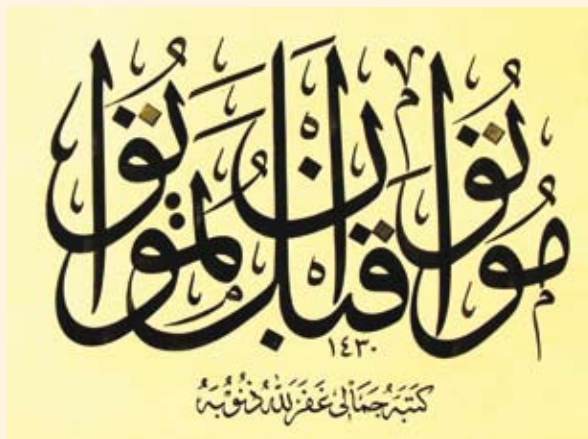 مُوتُوا قَبْلَ اَنْ تَمُوتُوا
١٤٣٠
كَتَبَهُ جَمَالى غَفَرَ اللهُ ذُنُوبَهُ